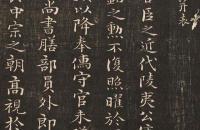 升表
者臣之近代陵夷公室
勳之勲不復照曜於
以降奉儒守官未
尚書膳部員外郎
中宗之朝高視於